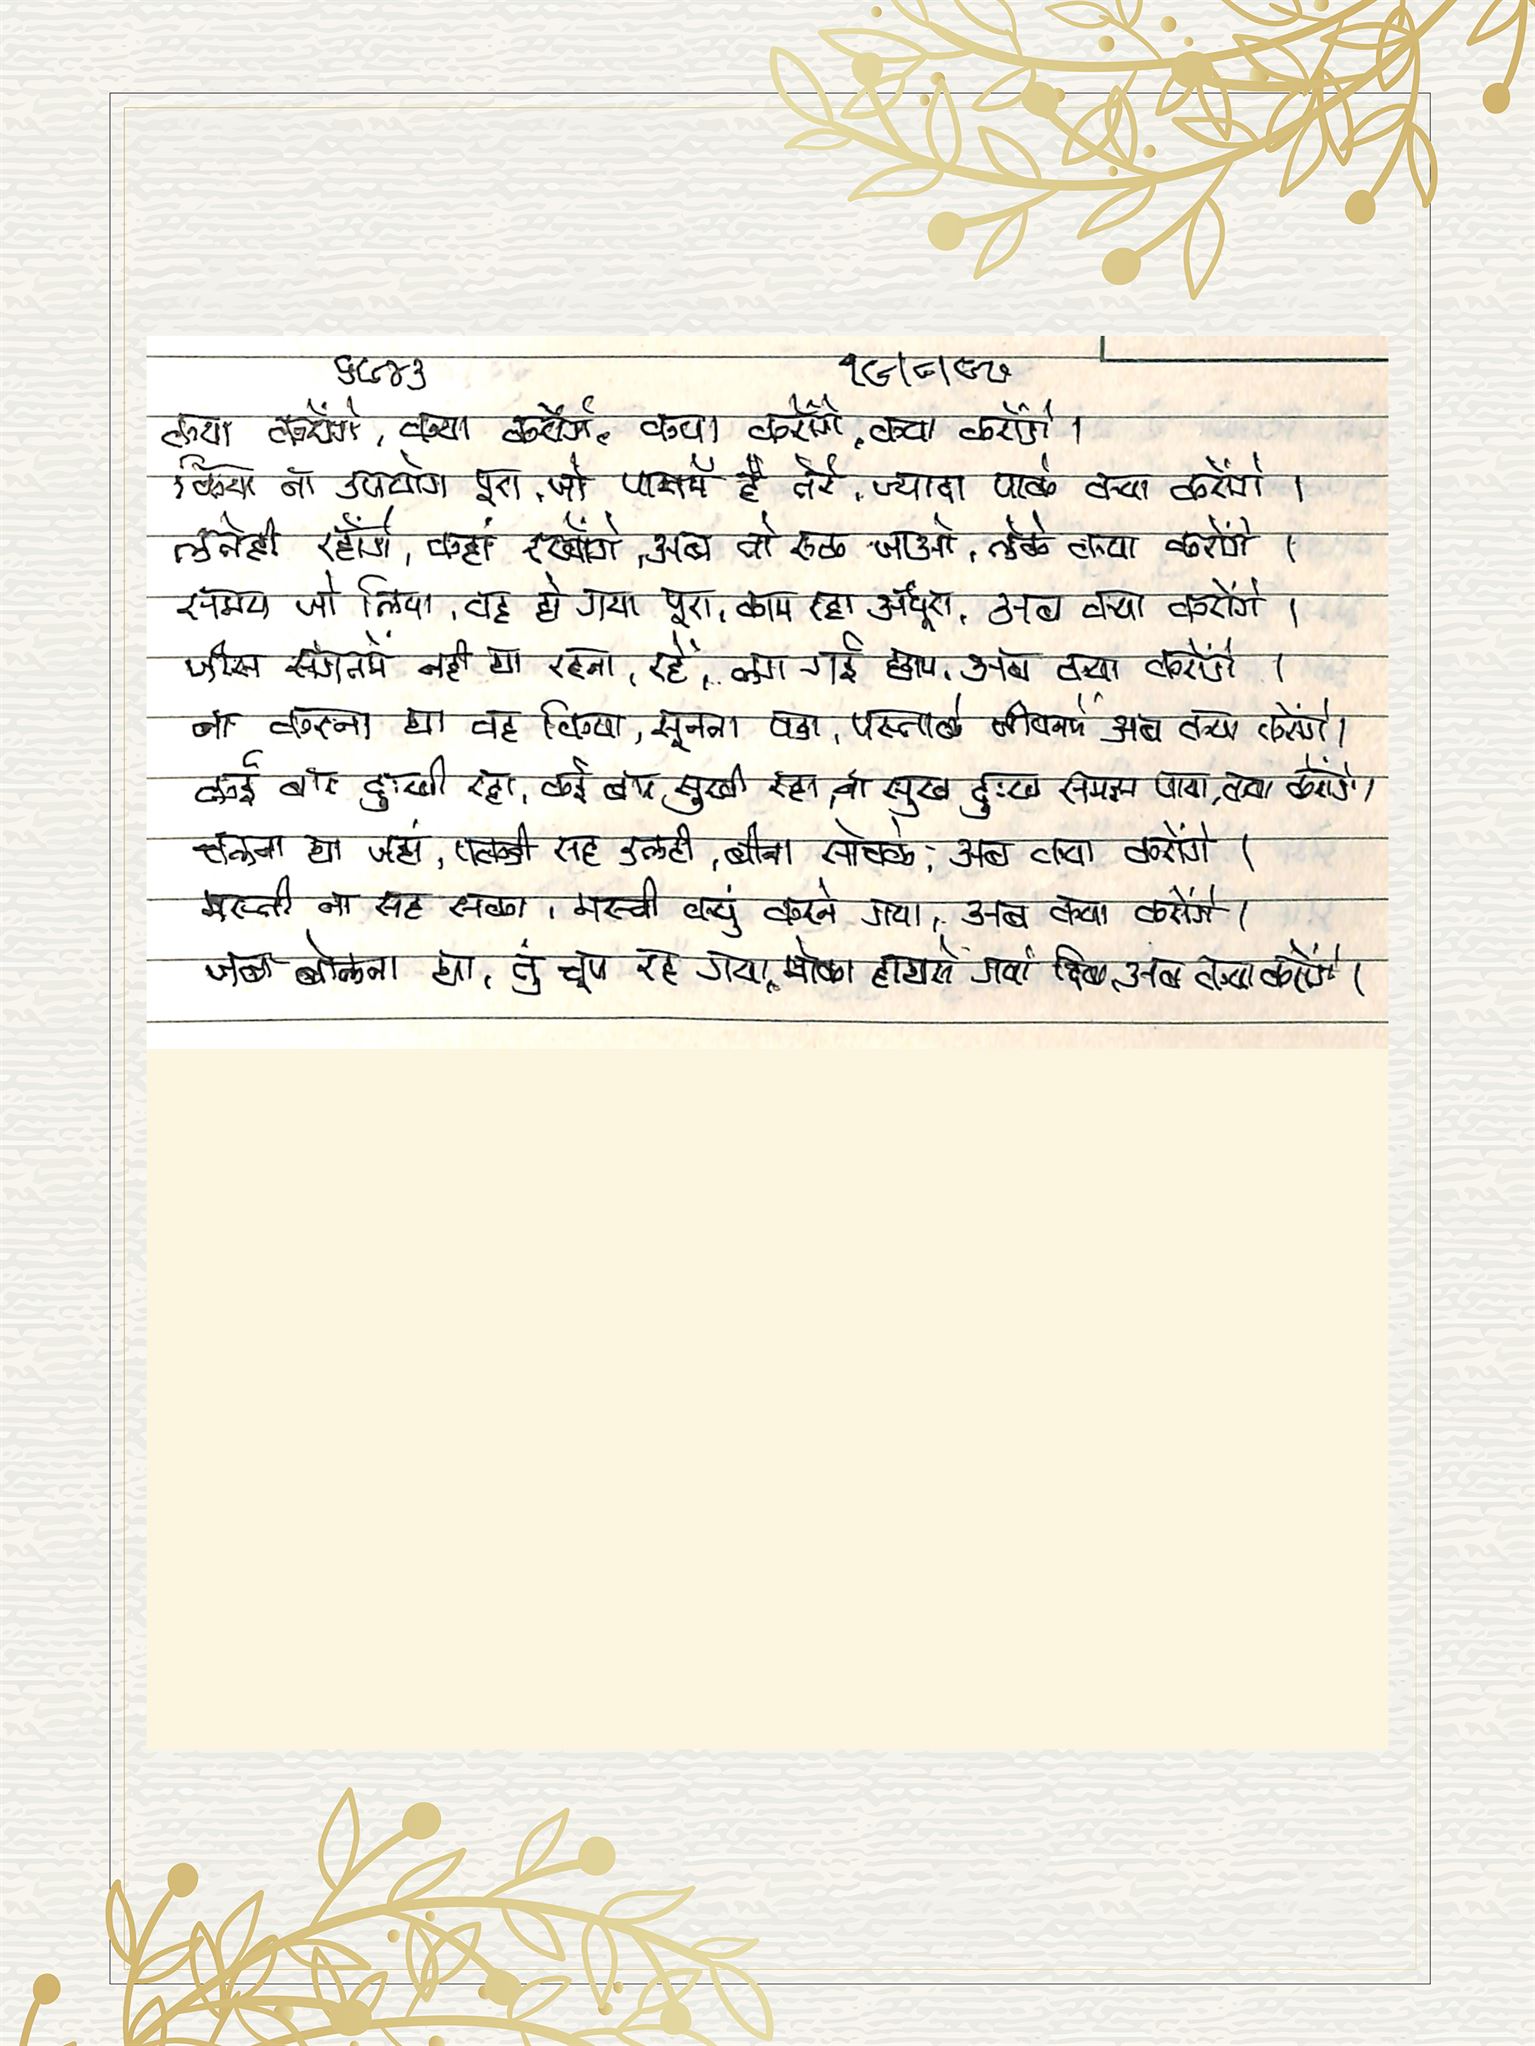 क्या करोंगे, क्या करोंगे, क्या करोंगे, क्या करोंगे ।
किया ना उपयोग पूरा, जो पासमें है तेरे, ज्यादा पाके क्या करोंगे ।
लेनेही रहोंगे, कहां रखोंगे, अब तो रुक जाओ, लेके क्या करोंगे ।
समय जो लिया, वह हो गया पूरा, काम रहा अधूरा, अब क्या करोंगे ।
जीस संगतमें नही था रहना, रहें, लग गई छाप, अब क्या करोंगे ।
ना करना था वह किया, सूनना पडा, पस्ताके जीवनमें अब क्या करोंगे ।
कई बार दुःखी रहा, कई बार सुखी रहा, ना सुख दुःख समज पाया, क्या करोंगे ।
चलना था जहां, पकडी राह उलटी, बीना सोचके, अब क्या करोंगे ।
मस्ती ना सह सका, मस्ती क्युं करने गया, अब क्या करोंगे ।
जब बोलना था, तुं चूप रह गया, मोका हाथसे गवां दिया, अब क्या करोंगे ।